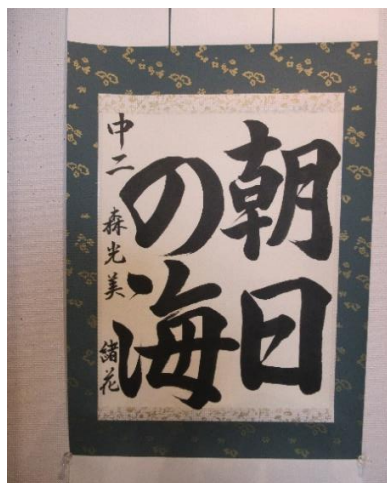 朝日
の海
中二 森光美 緒花